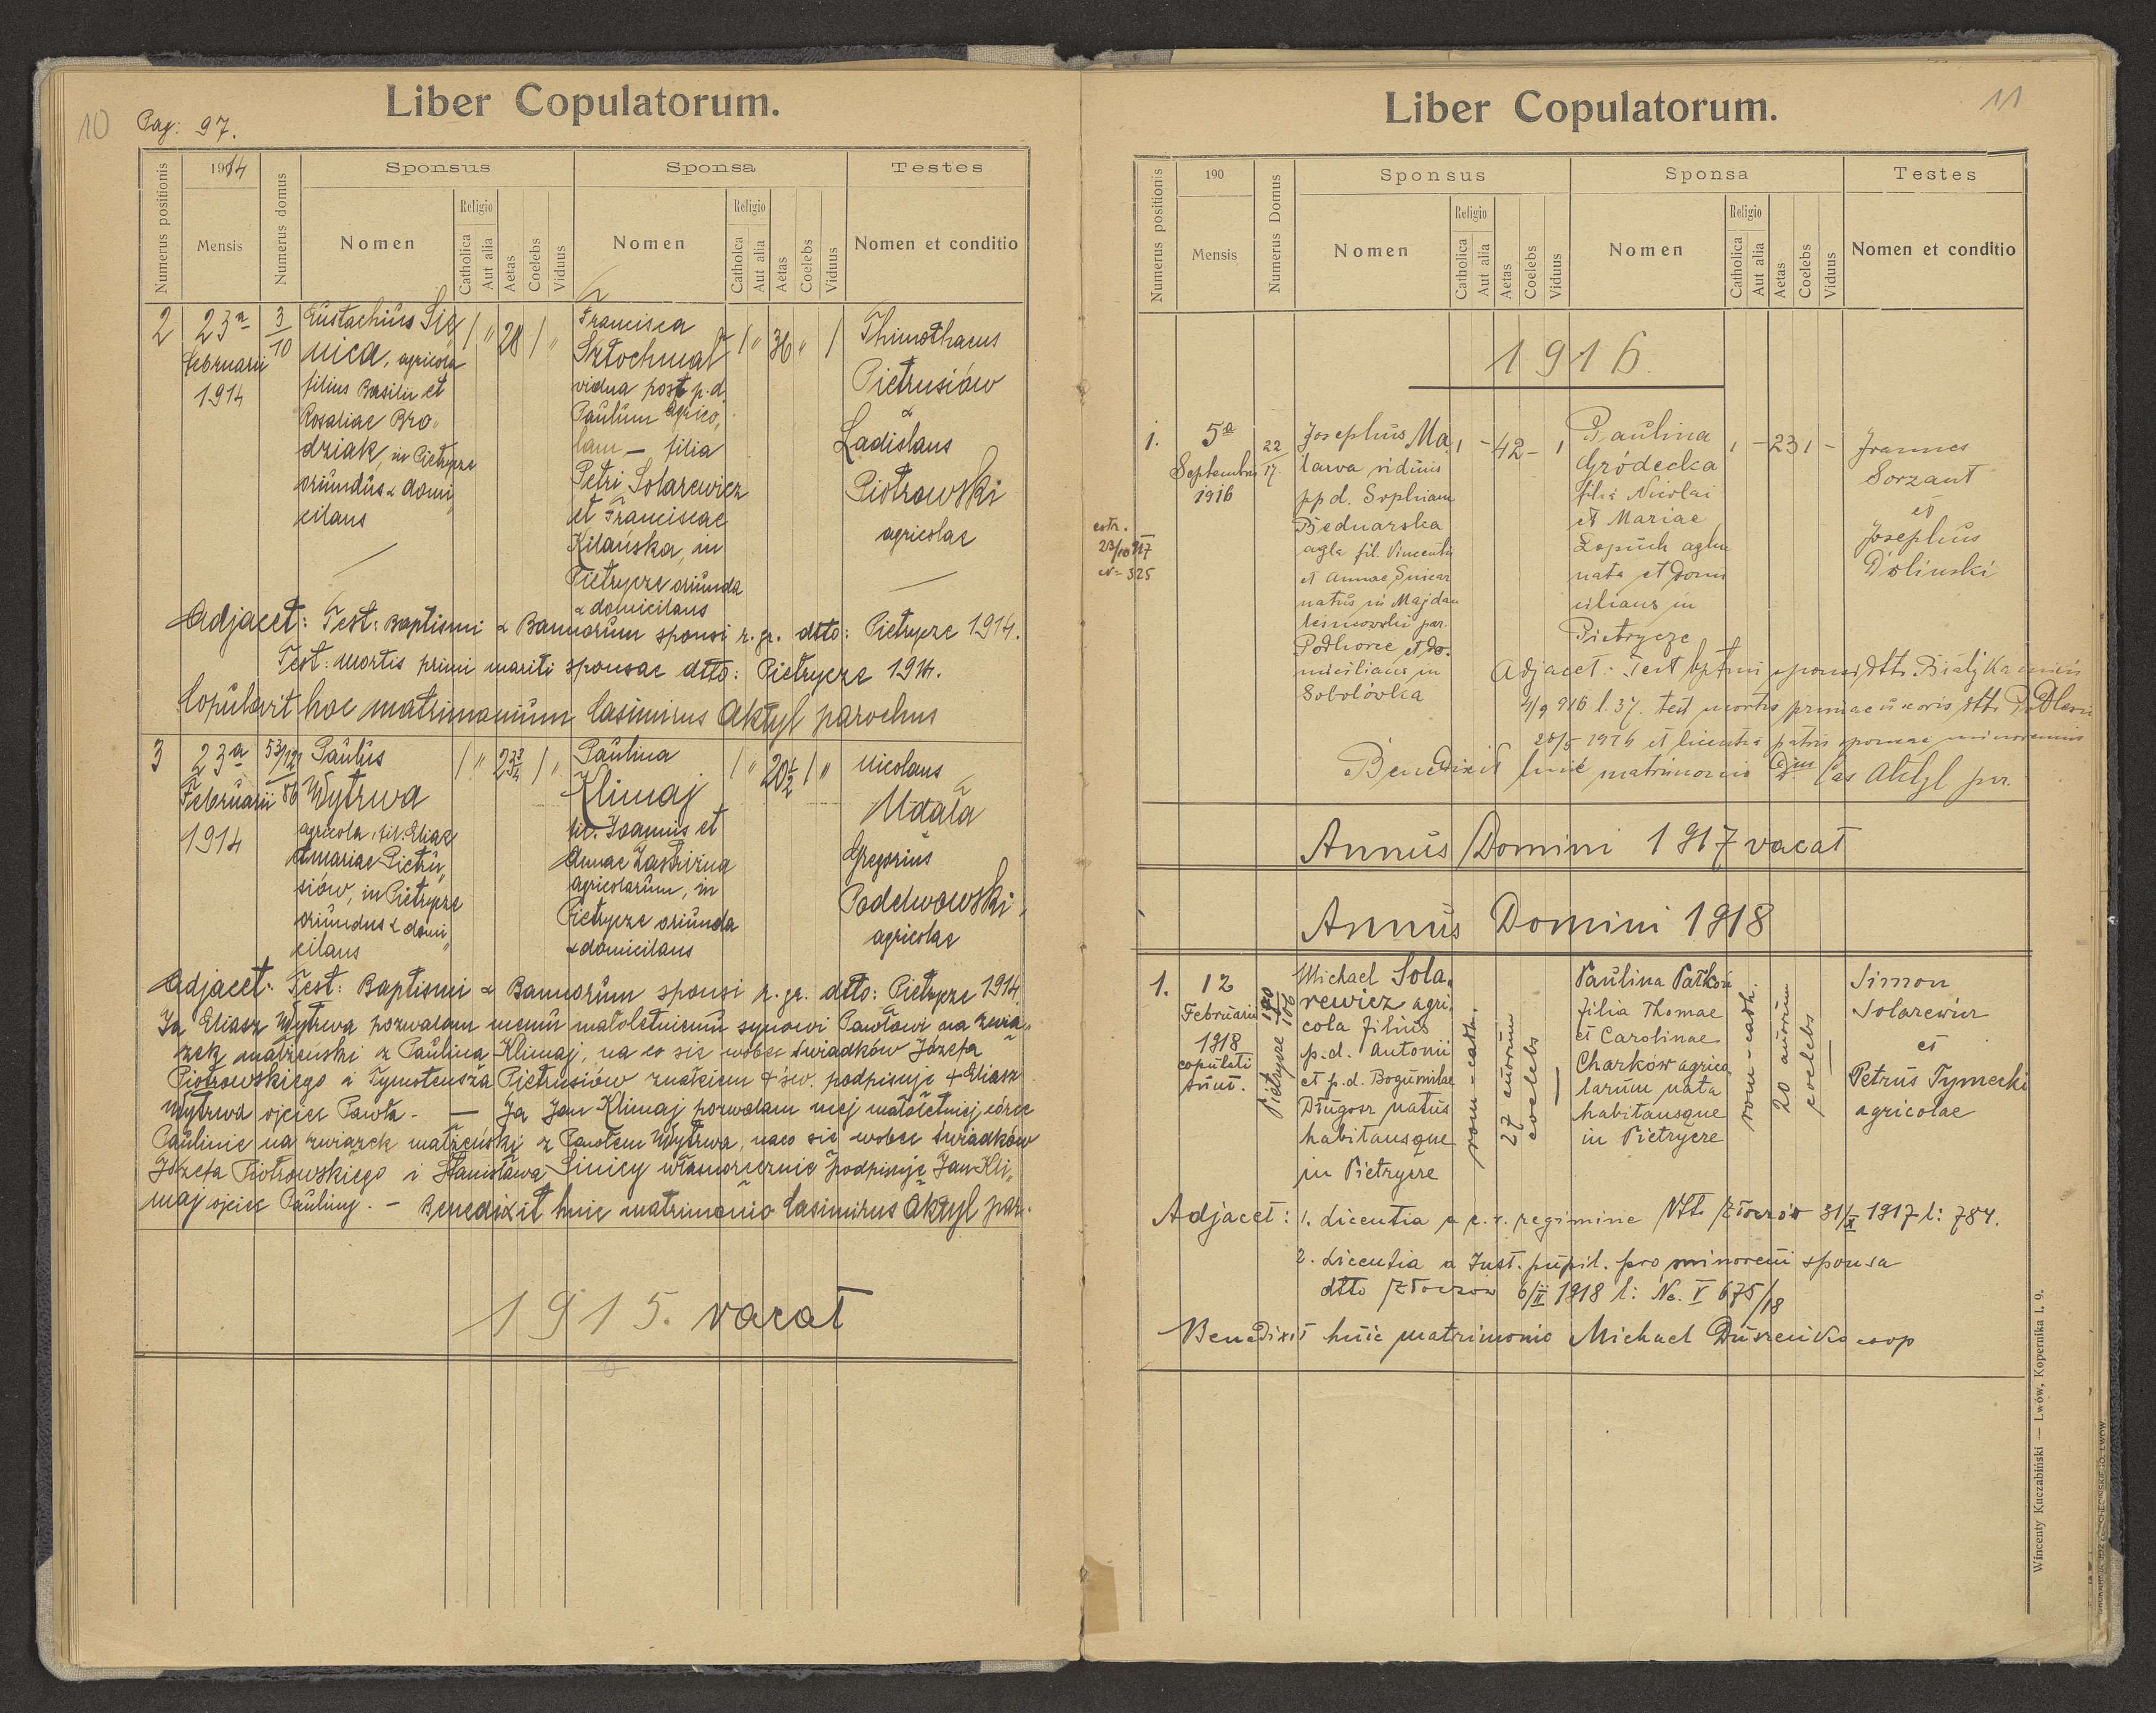 10 Pag: 97.
Liber Copulatorum.
Numerus positionis
1914
Mensis
Numerus domus
Sponsus
Nomen
Religio
Catholica
Aut alia
Aetas
Coelebs
Viduus
Sponsa
Nomen
Religio
Catholica
Aut alia
Aetas
Coelebs
Viduus
Testes
Nomen et conditio
2
23a
februarii
1914
3/10
Eustachius Sie
nica, agricola
filius Basilii et
Rosaliae Bro„
dziak, in Pietrycze
oriundus & domi„
cilans
/ „ 28 / „
Francisca
Sztochmal
vidua post p.d.
Paulum agrico„
lam — filia
Petri Solarewicz
et Franciscae
Kilańska, in
Pietrycze oriunda
& domicilans
/ „ 36 „ /
Thimothaeus
Pietrusiów
&
Ladislaus
Piotrowski
agricolae
Adjacet: Test: Baptismi & Bannorum sponsi r. gr. dtto: Pietrycze 1914.
Test: mortis primi mariti sponsae dtto: Pietrycze 1914.
Copulavit hoc matrimonium Casimirus Aktyl parochus
3
23a
Februarii
1914
53/12
86
Paulus
Wytrwa
agricola, fil. Eliae
et Mariae Pietru„
siów, in Pietrycze
oriundus & domi„
cilans
/ „ 23 3/4 / „
Paulina
Klimaj
fil. Joannis et
Annae Zastrizna
agricolarum, in
Pietrycze oriunda
& domicilans
/ „ 20 1/2 / „
Nicolaus
Udała
Gregorius
Podelwowski,
agricolae
Adjacet: Test: Baptismi & Bannorum sponsi r. gr. dtto: Pietrycze 1914.
Ja Eliasz Wytrwa pozwalam memu małoletniemu synowi Pawłowi na zwią„
zek małżeński z Paulina Klimaj, na co się wobec świadków Józefa
Piotrowskiego i Tymoteusza Pietrusiów znakiem + św. podpisuję + Eliasz
Wytrwa ojciec Pawła. — Ja Jan Klimaj pozwalam mej małoletniej córce
Paulinie na związek małżeński z Pawłem Wytrwa, na co się wobec świadków
Józefa Piotrowskiego i Stanisława Sinicy własnoręcznie podpisuję Jan Kli„
maj ojciec Pauliny. — Benedixit huic matrimonio Casimirus Aktyl par.
1915. vacat
11
Liber Copulatorum.
Numerus positionis
190
Mensis
Numerus Domus
Sponsus
Nomen
Religio
Catholica
Aut alia
Aetas
Coelebs
Viduus
Sponsa
Nomen
Religio
Catholica
Aut alia
Aetas
Coelebs
Viduus
Testes
Nomen et conditio
1916.
estr.
23/10 917
N= 325
1.
5a
Septembris
1916
22
17.
Josephus Ma„
larva viduus
pp d. Sophiam
Bednarska
agla fil. Vincentii
et Annae Sniear
natus in Majdan
par.
Podhorce et do„
miciliaus in
Sobolówka
1 - 42 - 1
Paulina
Gródecka
filia Nicolai
et Mariae
Łopuch
nata et domi
ciliaus in
Pietrycze
1 - 23 1 -
Joannes
Sorzant
et
Josephus
Doliński
Adjacet: Test bptmi sponsi dtto Białykamień
4/9 916 l. 37. test mortis primae uxoris dtto
20/5 1916 et licentia patris sponsae minorennis
Benedixit huic matrimonio Cas Aktyl par.
Annus Domini 1917 vacat
Annus Domini 1918
1.
12
Februarii
1918
copulati
sunt.
Pietrycze 190
106
Michael Sola„
rewicz agri„
cola filius
p.d. Antonii
et p.d. Bogumilae
Długosz natus
habitansque
in Pietrycze
rom-cath.
27 annorum
coelebs
—
Paulina Pańków
filia Thomae
et Carolinae
Charków agrico
larum nata
habitansque
in Pietrycze
rom-cath.
20 annorum
coelebs
—
Simon
Solarewicz
et
Petrus Tymecki
agricolae
Adjacet: 1. Licentia a c. r. regimine dtto Złoczów 31/X 1917 l: 784.
2. Licentia a Inst. pupil. pro minoreni sponsa
dtto Złoczów 6/II 1918 l: Nc. V 675/18
Benedixit huic matrimonio Michael Duszeńko coop
Wincenty Kuczabiński — Lwów, Kopernika l. 9.